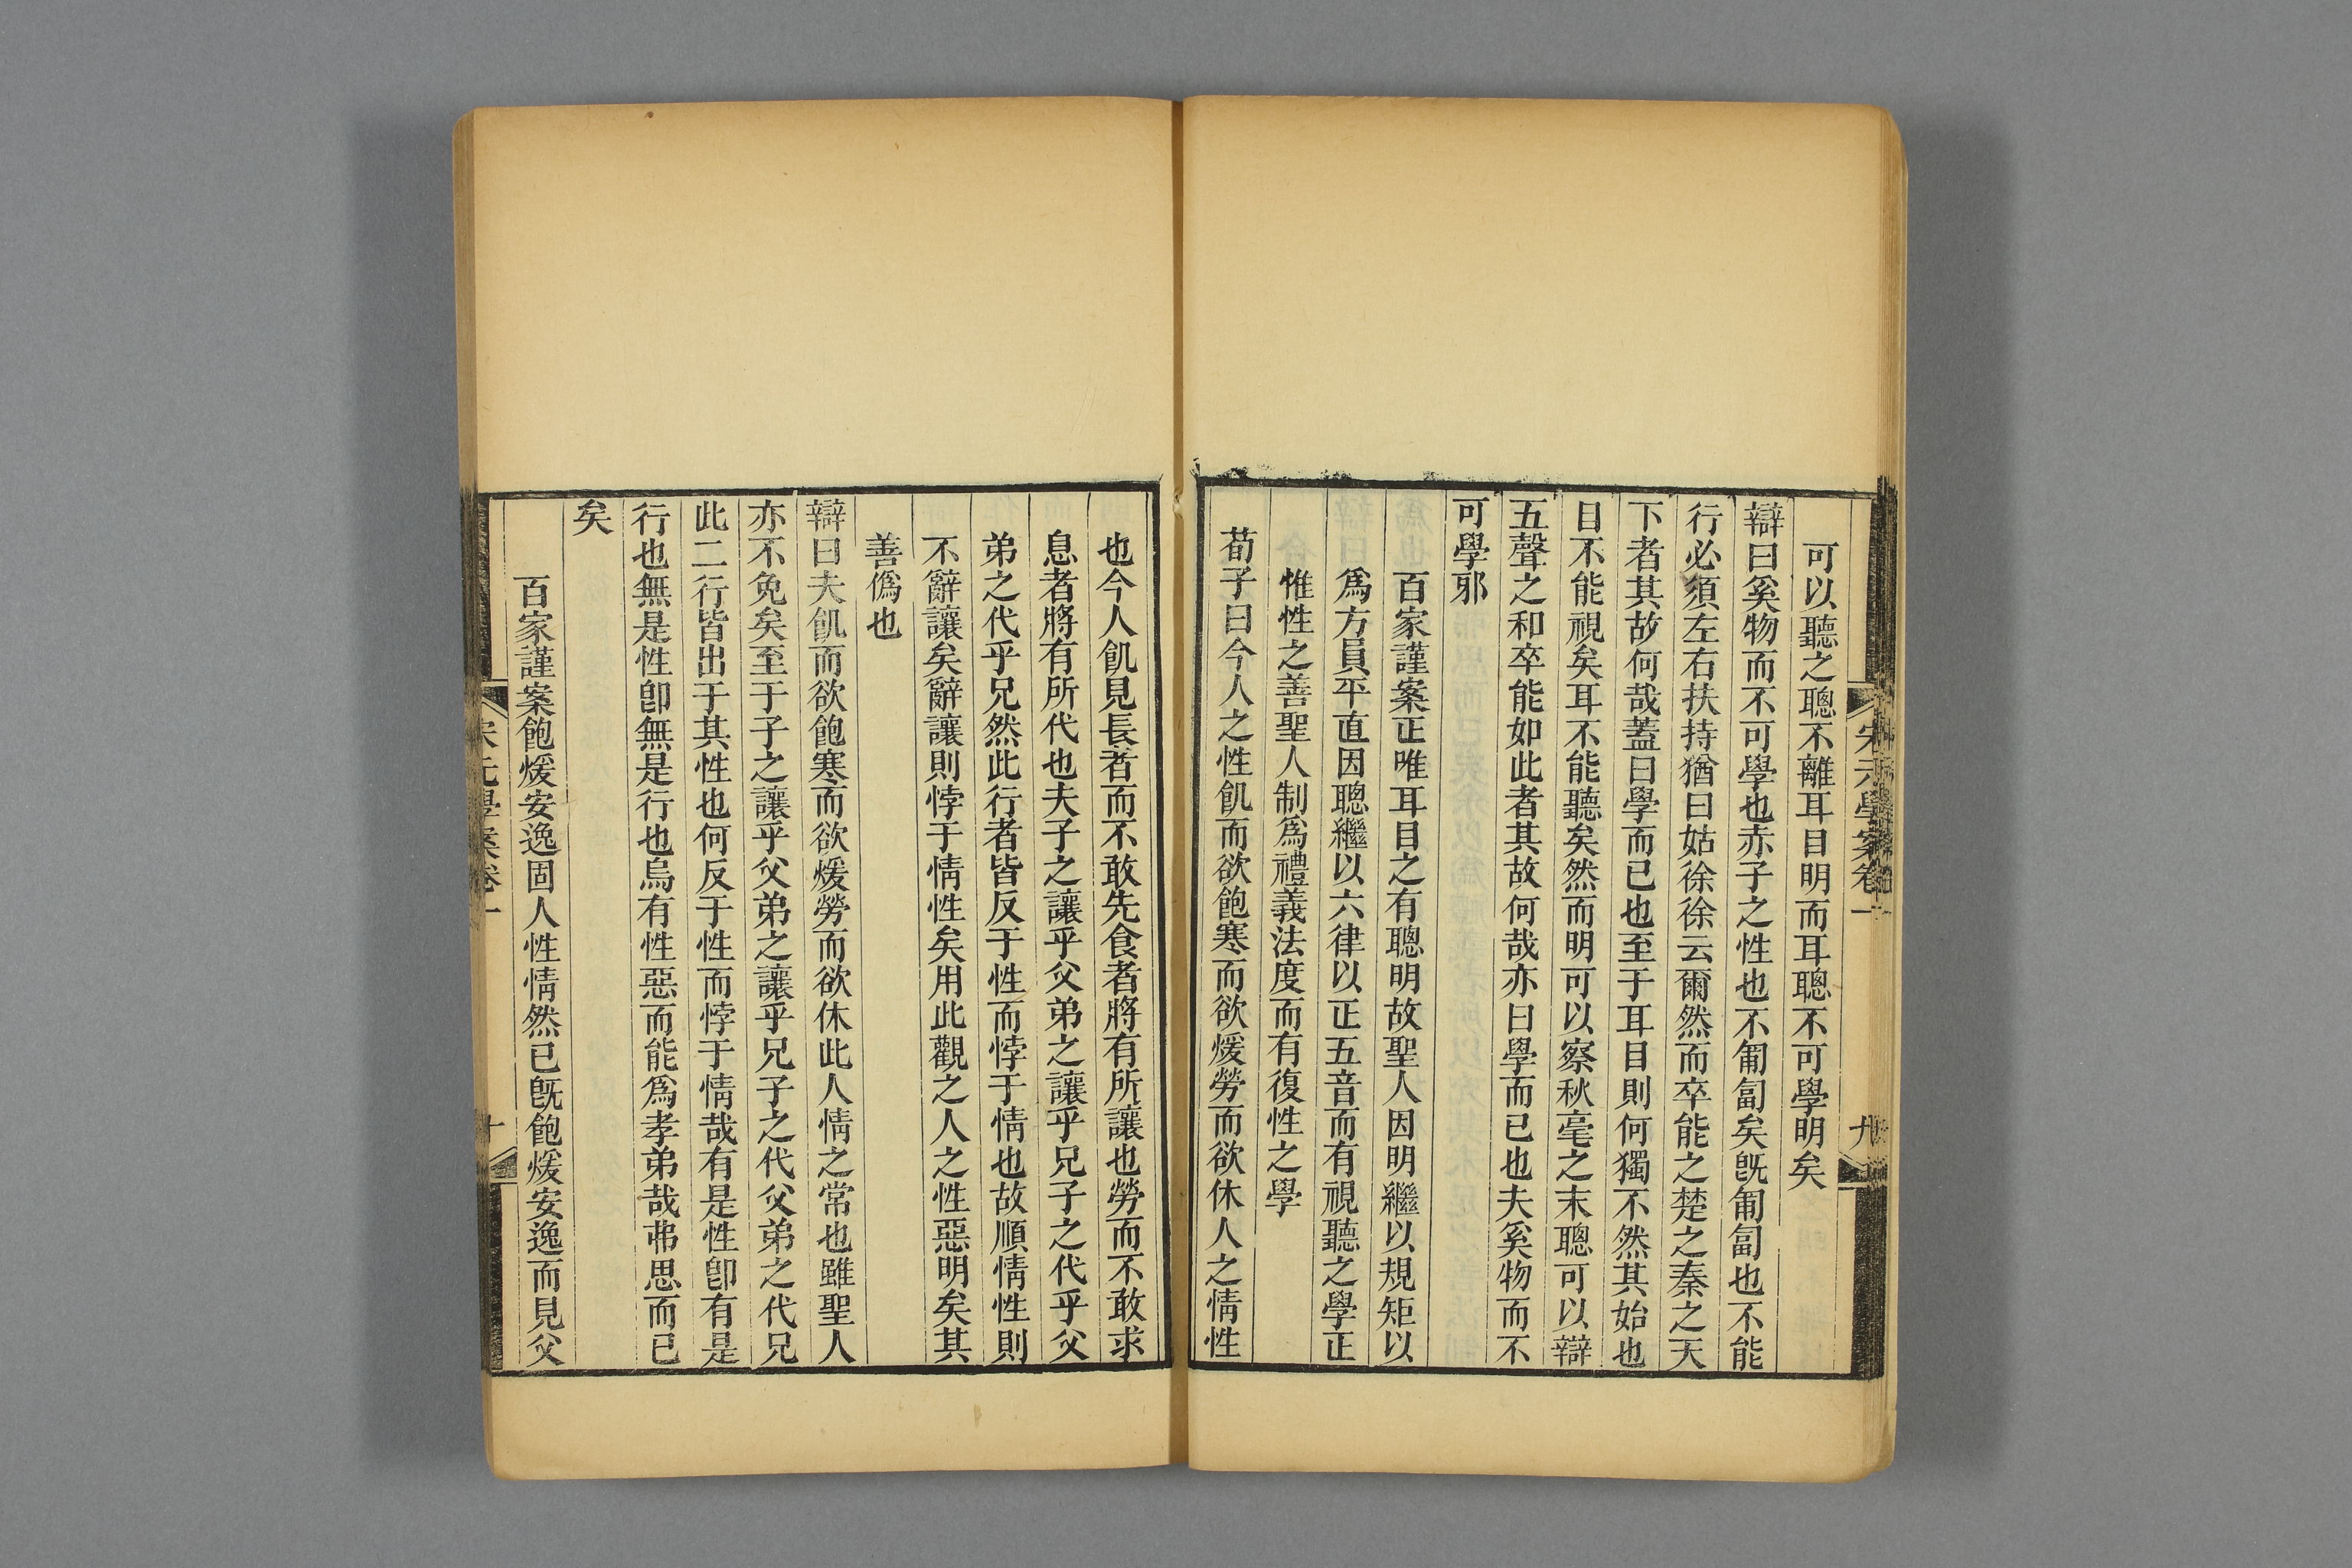 宋元學案卷一
九
可以聽之聰不離耳目明而耳聰不可學明矣
辯曰奚物而不可學也赤子之性也不匍匐矣旣匍匐也不能
行必須左右扶持猶曰姑徐徐云爾然而卒能之楚之秦之天
下者其故何哉蓋曰學而已也至于耳目則何獨不然其始也
目不能視矣耳不能聽矣然而明可以察秋毫之末聰可以辯
五聲之和卒能如此者其故何哉亦曰學而已也夫奚物而不
可學邪
百家謹案正唯耳目之有聰明故聖人因明繼以規矩以
爲方員平直因聰繼以六律以正五音而有視聽之學正
惟性之善聖人制爲禮義法度而有復性之學
荀子曰今人之性飢而欲飽寒而欲煖勞而欲休人之情性
也今人飢見長者而不敢先食者將有所讓也勞而不敢求
息者將有所代也夫子之讓乎父弟之讓乎兄子之代乎父
弟之代乎兄然此行者皆反于性而悖于情也故順情性則
不辭讓矣辭讓則悖于情性矣用此觀之人之性惡明矣其
善僞也
辯曰夫飢而欲飽寒而欲煖勞而欲休此人情之常也雖聖人
亦不免矣至于子之讓乎父弟之讓乎兄子之代父弟之代兄
此二行皆出于其性也何反于性而悖于情哉有是性卽有是
行也無是性卽無是行也烏有性惡而能爲孝弟哉弗思而已
矣
百家謹案飽煖安逸固人性情然已旣飽煖安逸而見父
宋元學案卷一
十